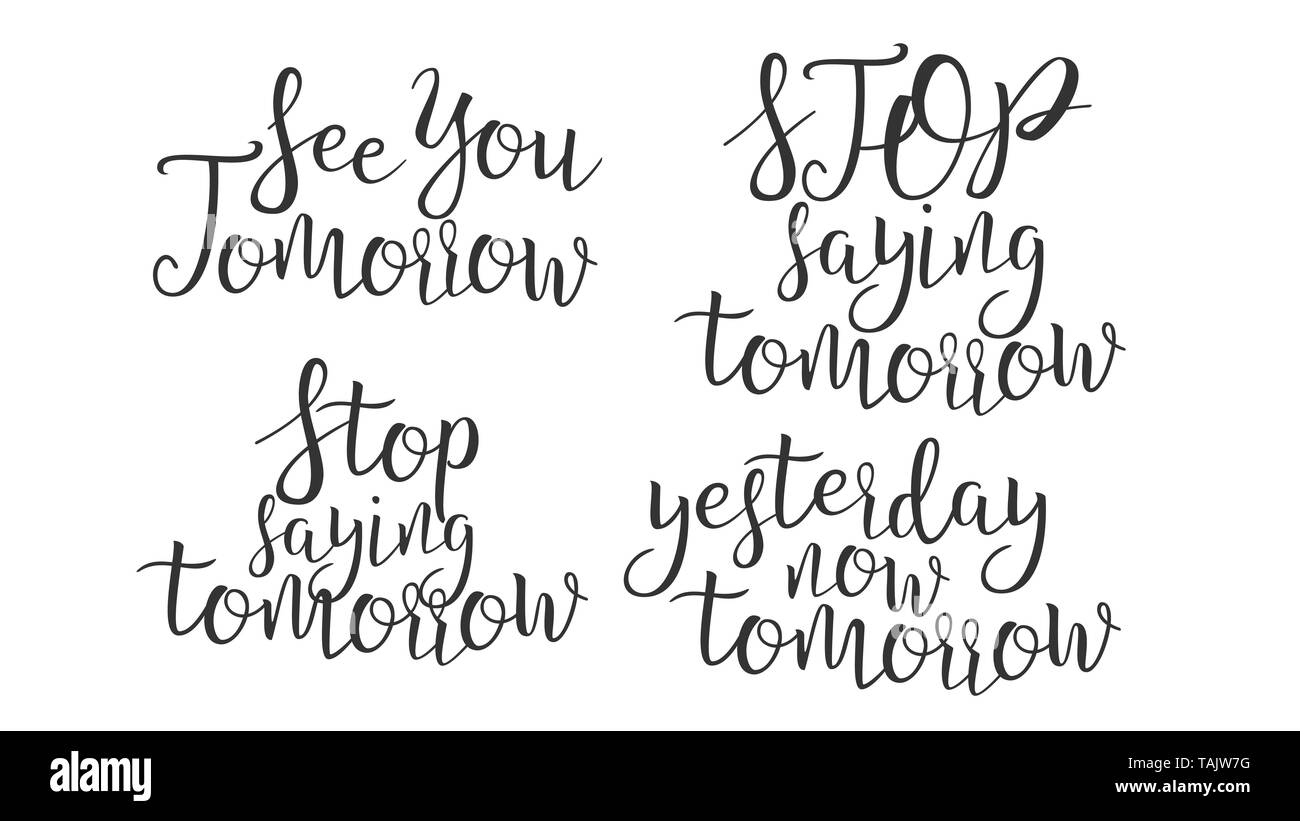 See You
Tomorrow
STOP
saying
tomorrow
Stop
saying
tomorrow
yesterday
now
tomorrow
alamy
Image ID: TAJW7G
www.alamy.com